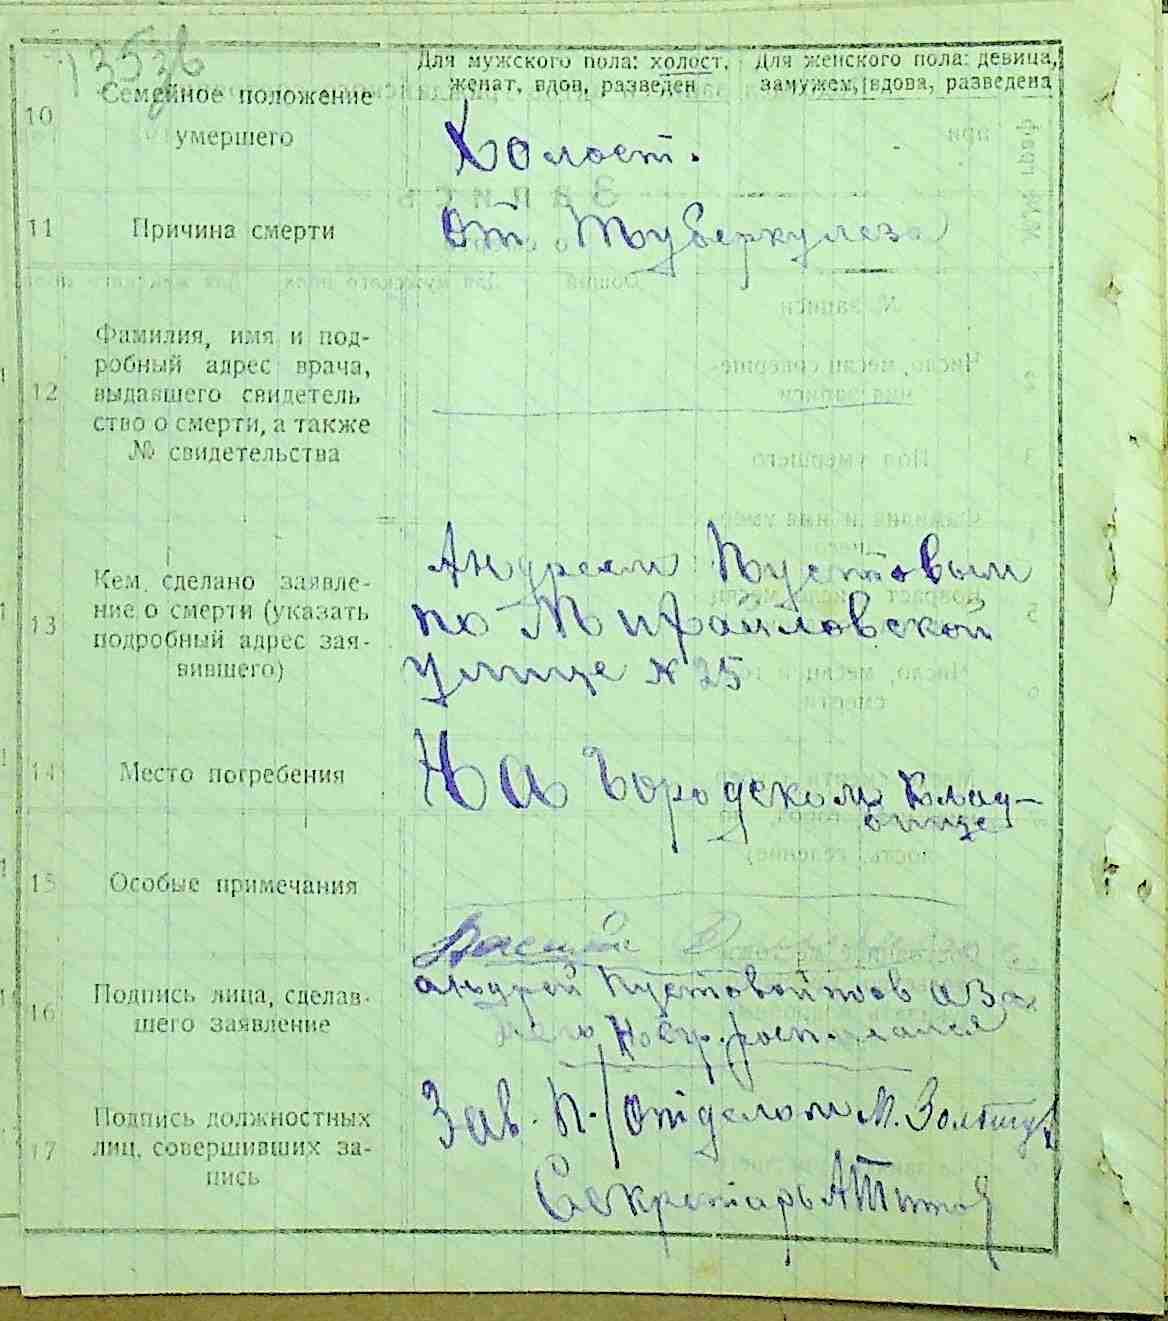 Для мужского пола: холост, женат, вдов, разведен
Для женского пола: девица, замужем, вдова, разведена
10
Семейное положение
умершего
Холост.
11
Причина смерти
От Туберкулеза
12
Фамилия, имя и под-
робный адрес врача,
выдавшего свидетель
ство о смерти, а также
№ свидетельства
13
Кем сделано заявле-
ние о смерти (указать
подробный адрес зая-
вившего)
Андреем Пустовым
по Михайловской
улице № 25
14
Место погребения
На Городском Клад-
бище
15
Особые примечания
16
Подпись лица, сделав-
шего заявление
Андрей Пустовойтов а за
негр.
17
Подпись должностных
лиц, совершивших за-
пись
Зав. П/Отделом М.
Секретарь